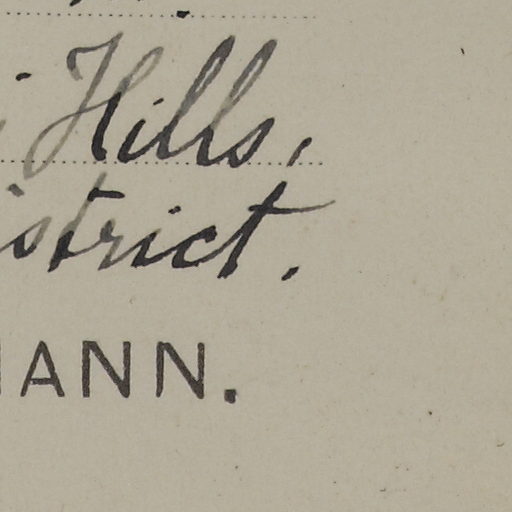 Hills,
istrict.
MANN.